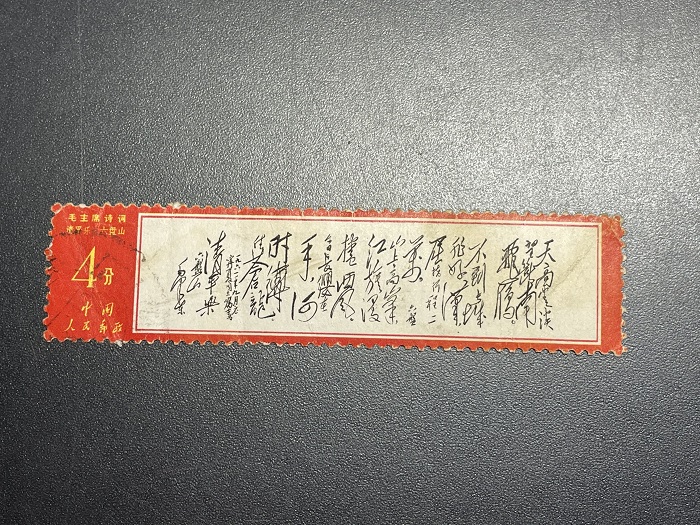 毛主席诗词
清平乐 六盘山
4分
中国
人民邮政
天高云淡
望断南
飞雁
不到长
城非好汉
屈指行程二
万
六盘
山上高峰
红旗漫
捲西风
今日长缨在
手何
时缚
住苍龙
清平乐
六盘山
毛泽东